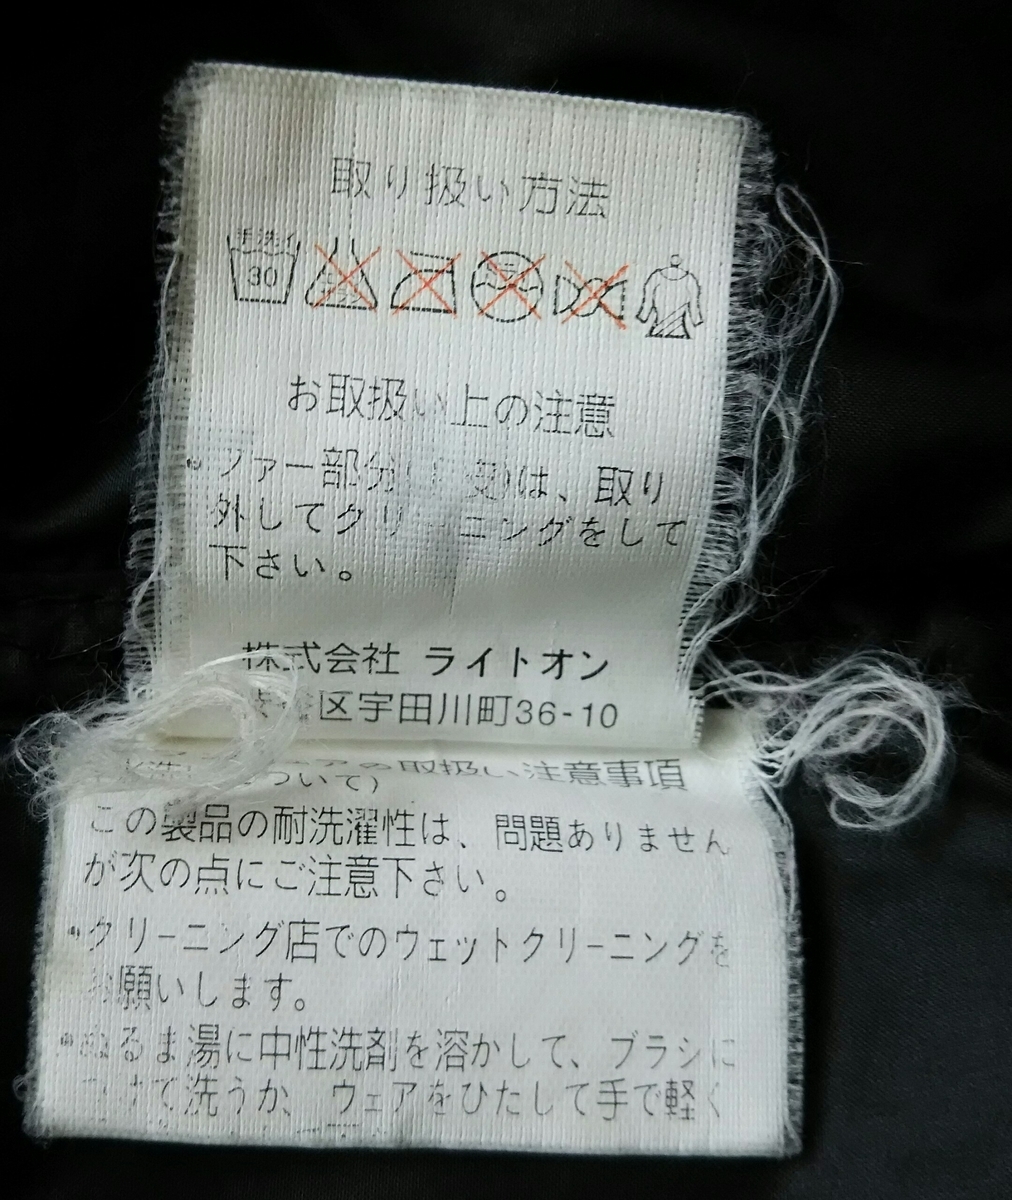 取り扱い方法
手洗イ
30
お取扱い上の注意
・ファー部分は、取り
外してクリーニングをして
下さい。
株式会社 ライトオン
区宇田川町36-10
の取扱い注意事項
ついて)
この製品の耐洗濯性は、問題ありません
が次の点にご注意下さい。
・クリーニング店でのウェットクリーニングを
お願いします。
・ぬるま湯に中性洗剤を溶かして、ブラシに
つけて洗うか、ウェアをひたして手で軽く